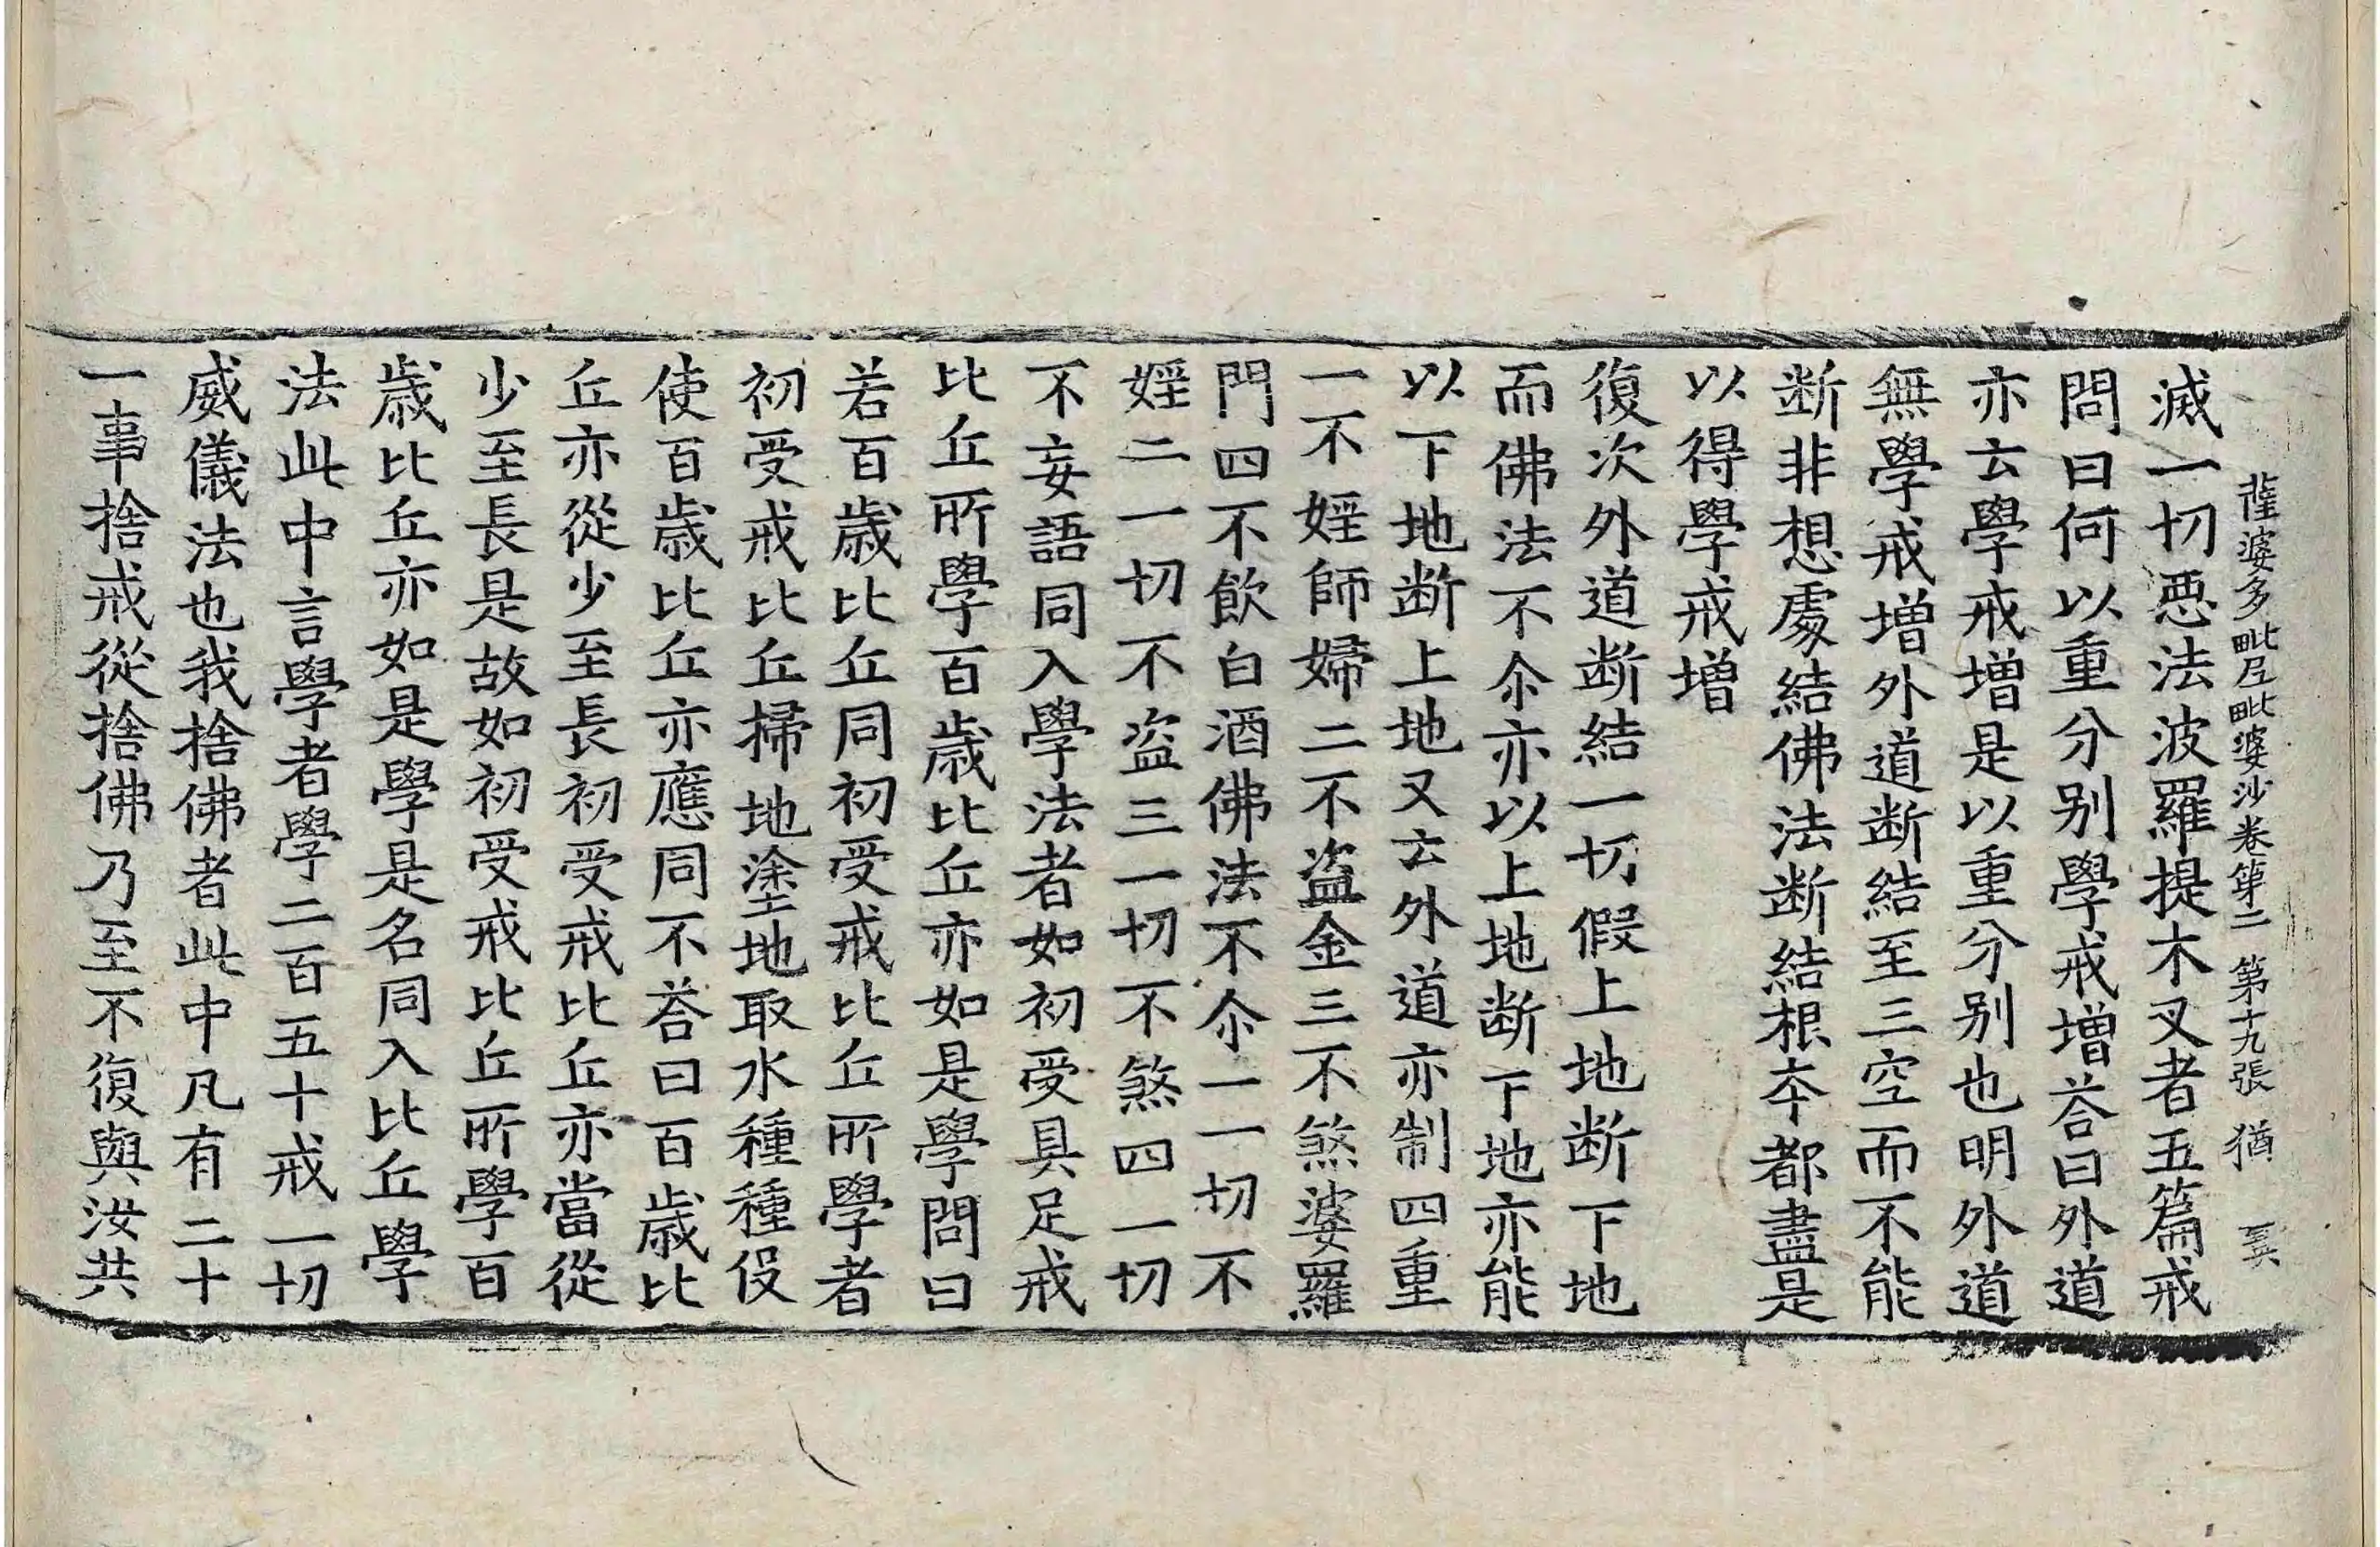 薩婆多毗尼毗婆沙卷第二 第十九張 猶
滅一切惡法波羅提木叉者五篇戒
問曰何以重分别學戒增荅曰外道
亦云學戒增是以重分别也明外道
無學戒增外道断結至三空而不能
断非想處結佛法断結根夲都盡是
以得學戒增
復次外道断結一切假上地断下地
而佛法不尒亦以上地断下地亦能
以下地断上地又云外道亦制四重
一不婬師婦二不盗金三不煞婆羅
門四不飲白酒佛法不尒一一切不
婬二一切不盗三一切不煞四一切
不妄語同入學法者如初受具足戒
比丘所學百歲比丘亦如是學問曰
若百歲比丘同初受戒比丘所學者
初受戒比丘掃地塗地取水種種役
使百歲比丘亦應同不荅曰百歲比
丘亦從少至長初受戒比丘亦當從
少至長是故如初受戒比丘所學百
歲比丘亦如是學是名同入比丘學
法此中言學者學二百五十戒一切
威儀法也我捨佛者此中凡有二十
一事捨戒從捨佛乃至不復與汝共